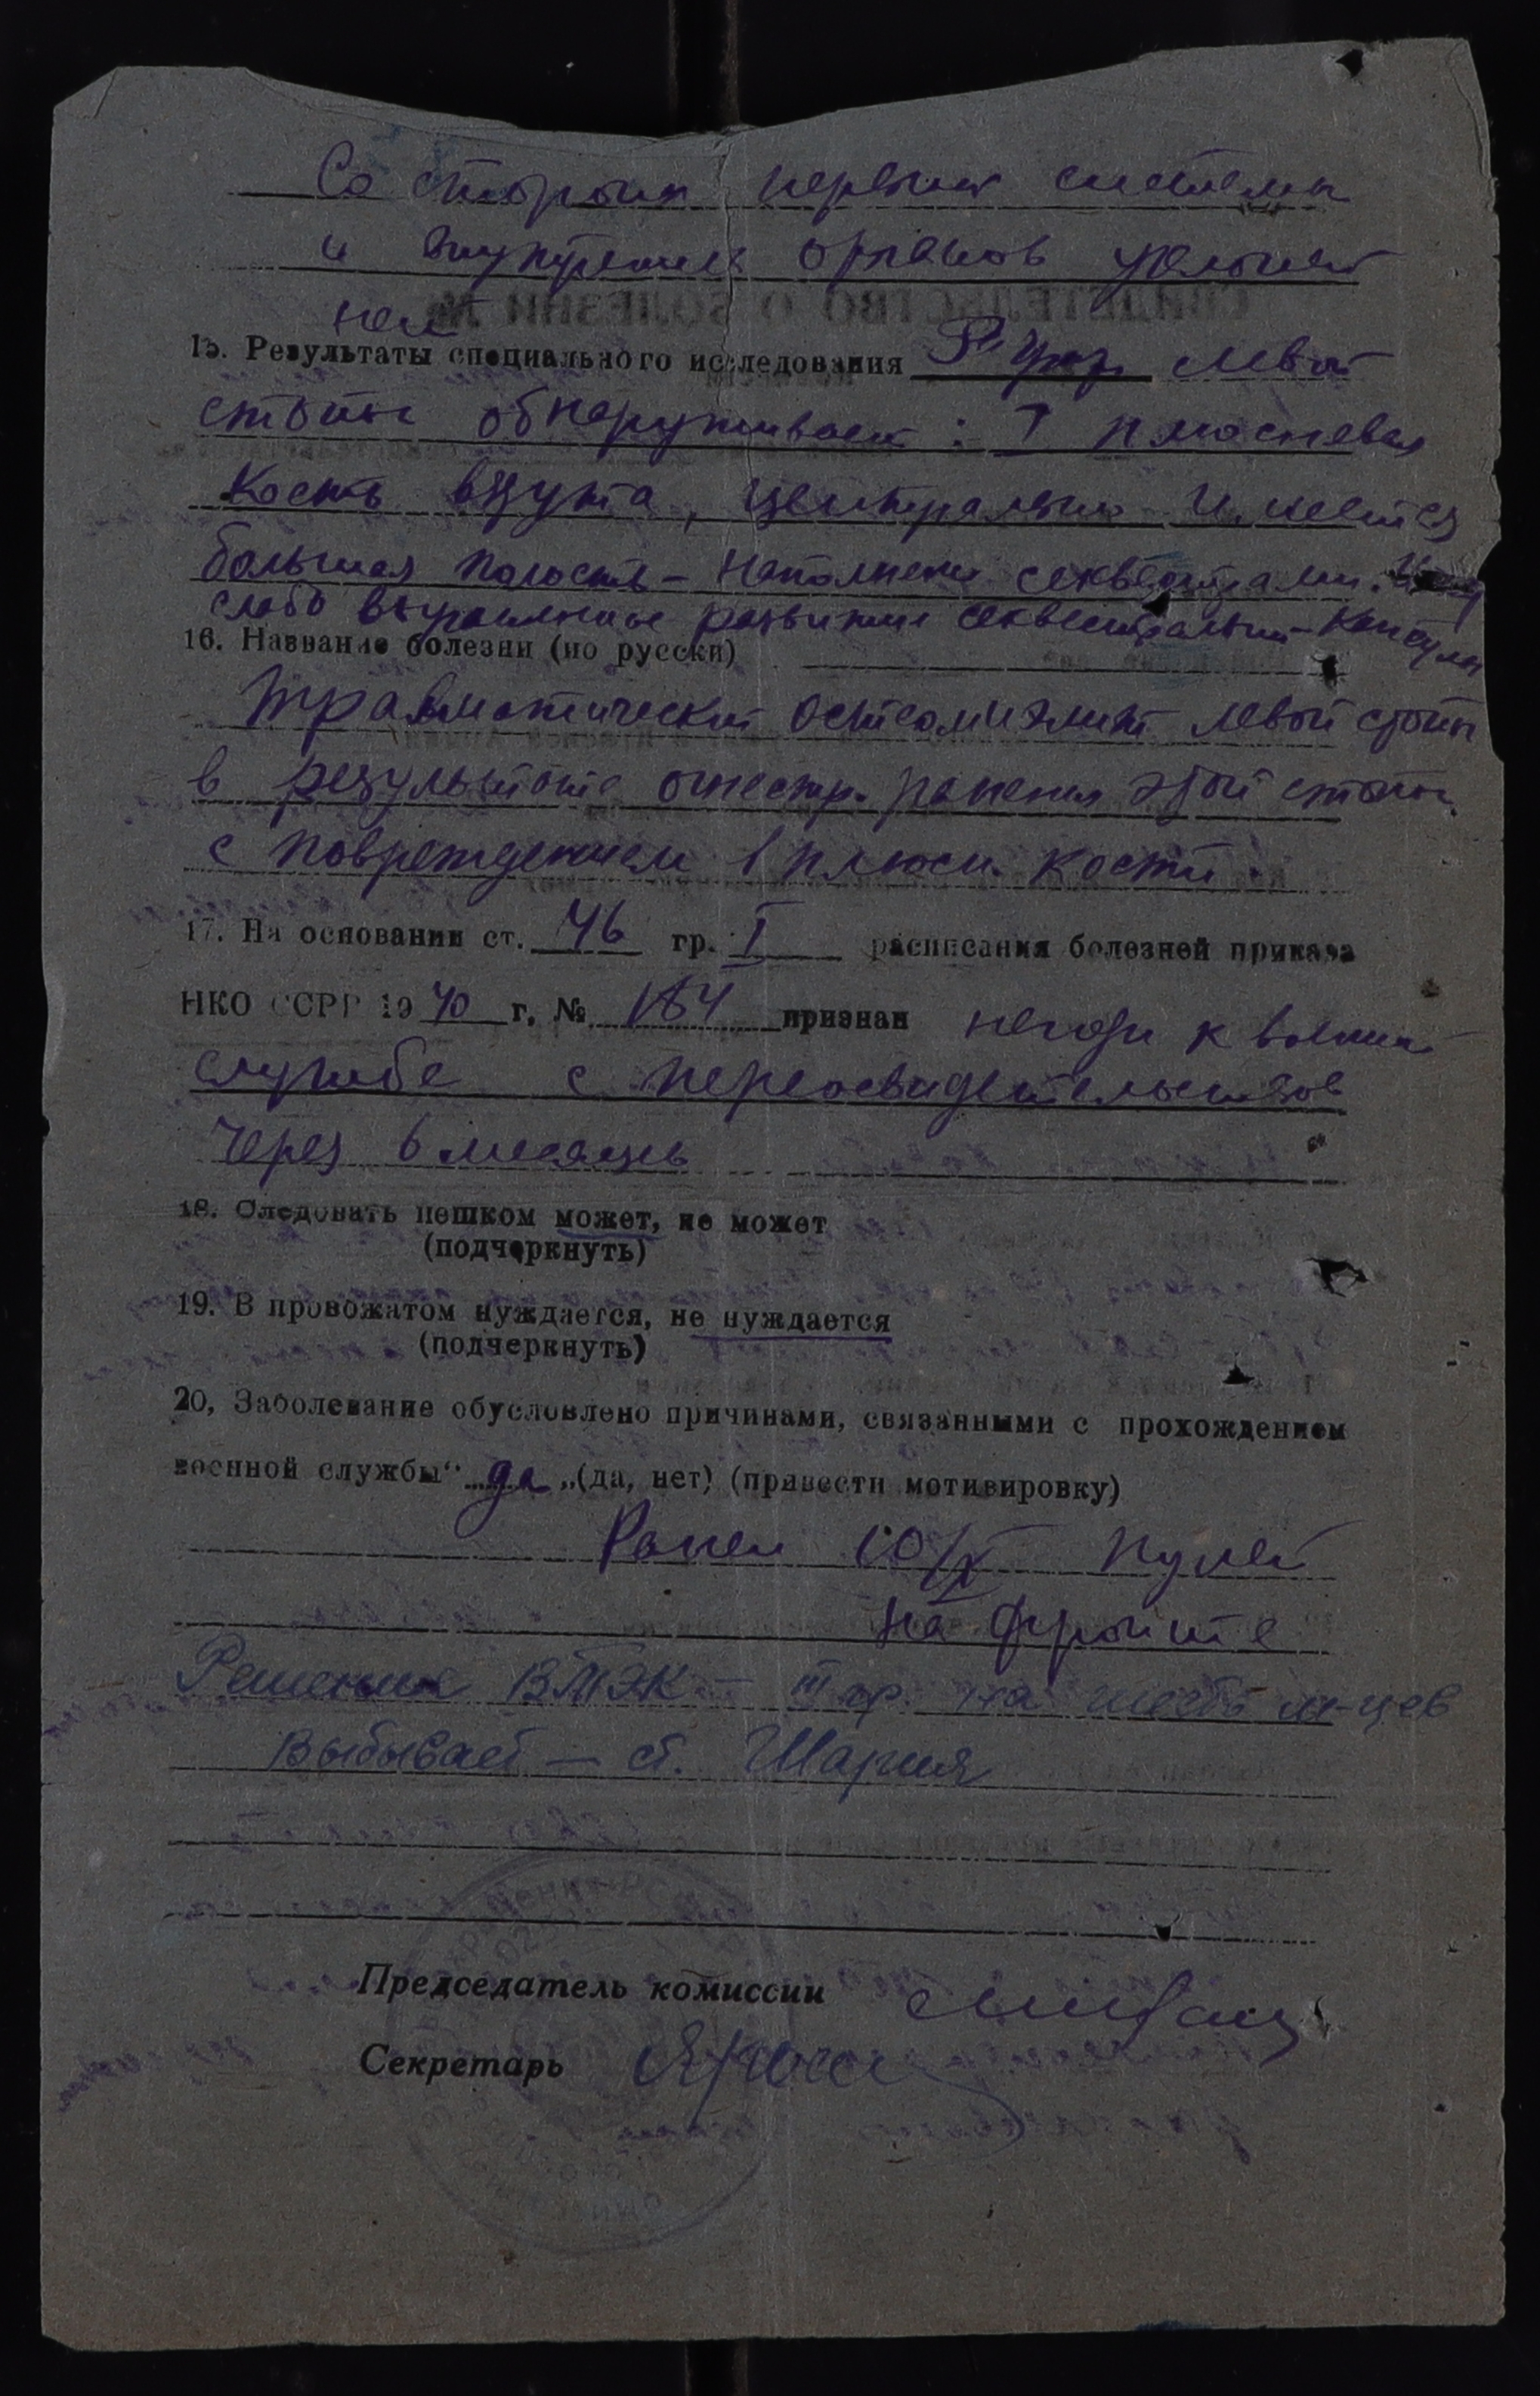 Со стороны нервной системы
и внутренних органов уклонений
нет
15. Результаты специального исследования левой
стопы обнаруживает: I плюсневая
кость вздута, центрально имеется
большая полость - наполнена секвестрами.
слабо выраженное развитие секвестральной капсулы
16. Название болезни (по русски)
Травматический остеомиэлит левой стопы
в результате огнестр. ранения этой стопы
с повреждением 1 плюсн. кости.
17. На основании ст. 46 гр. I расписания болезней приказа
НКО СССР 1940 г. № 184 признан негоден к военной
службе с переосвидетельствов
через 6 месяцев
18. Следовать пешком может, не может
(подчеркнуть)
19. В провожатом нуждается, не нуждается
(подчеркнуть)
20, Заболевание обусловлено причинами, связанными с прохождением
военной службы“ да „(да, нет) (привести мотивировку)
Ранен 10/X пулей
на фронте
Решение ВТЭК - III гр. на шесть м-цев
Выбывает - ст. Шария
Председатель комиссии
Секретарь